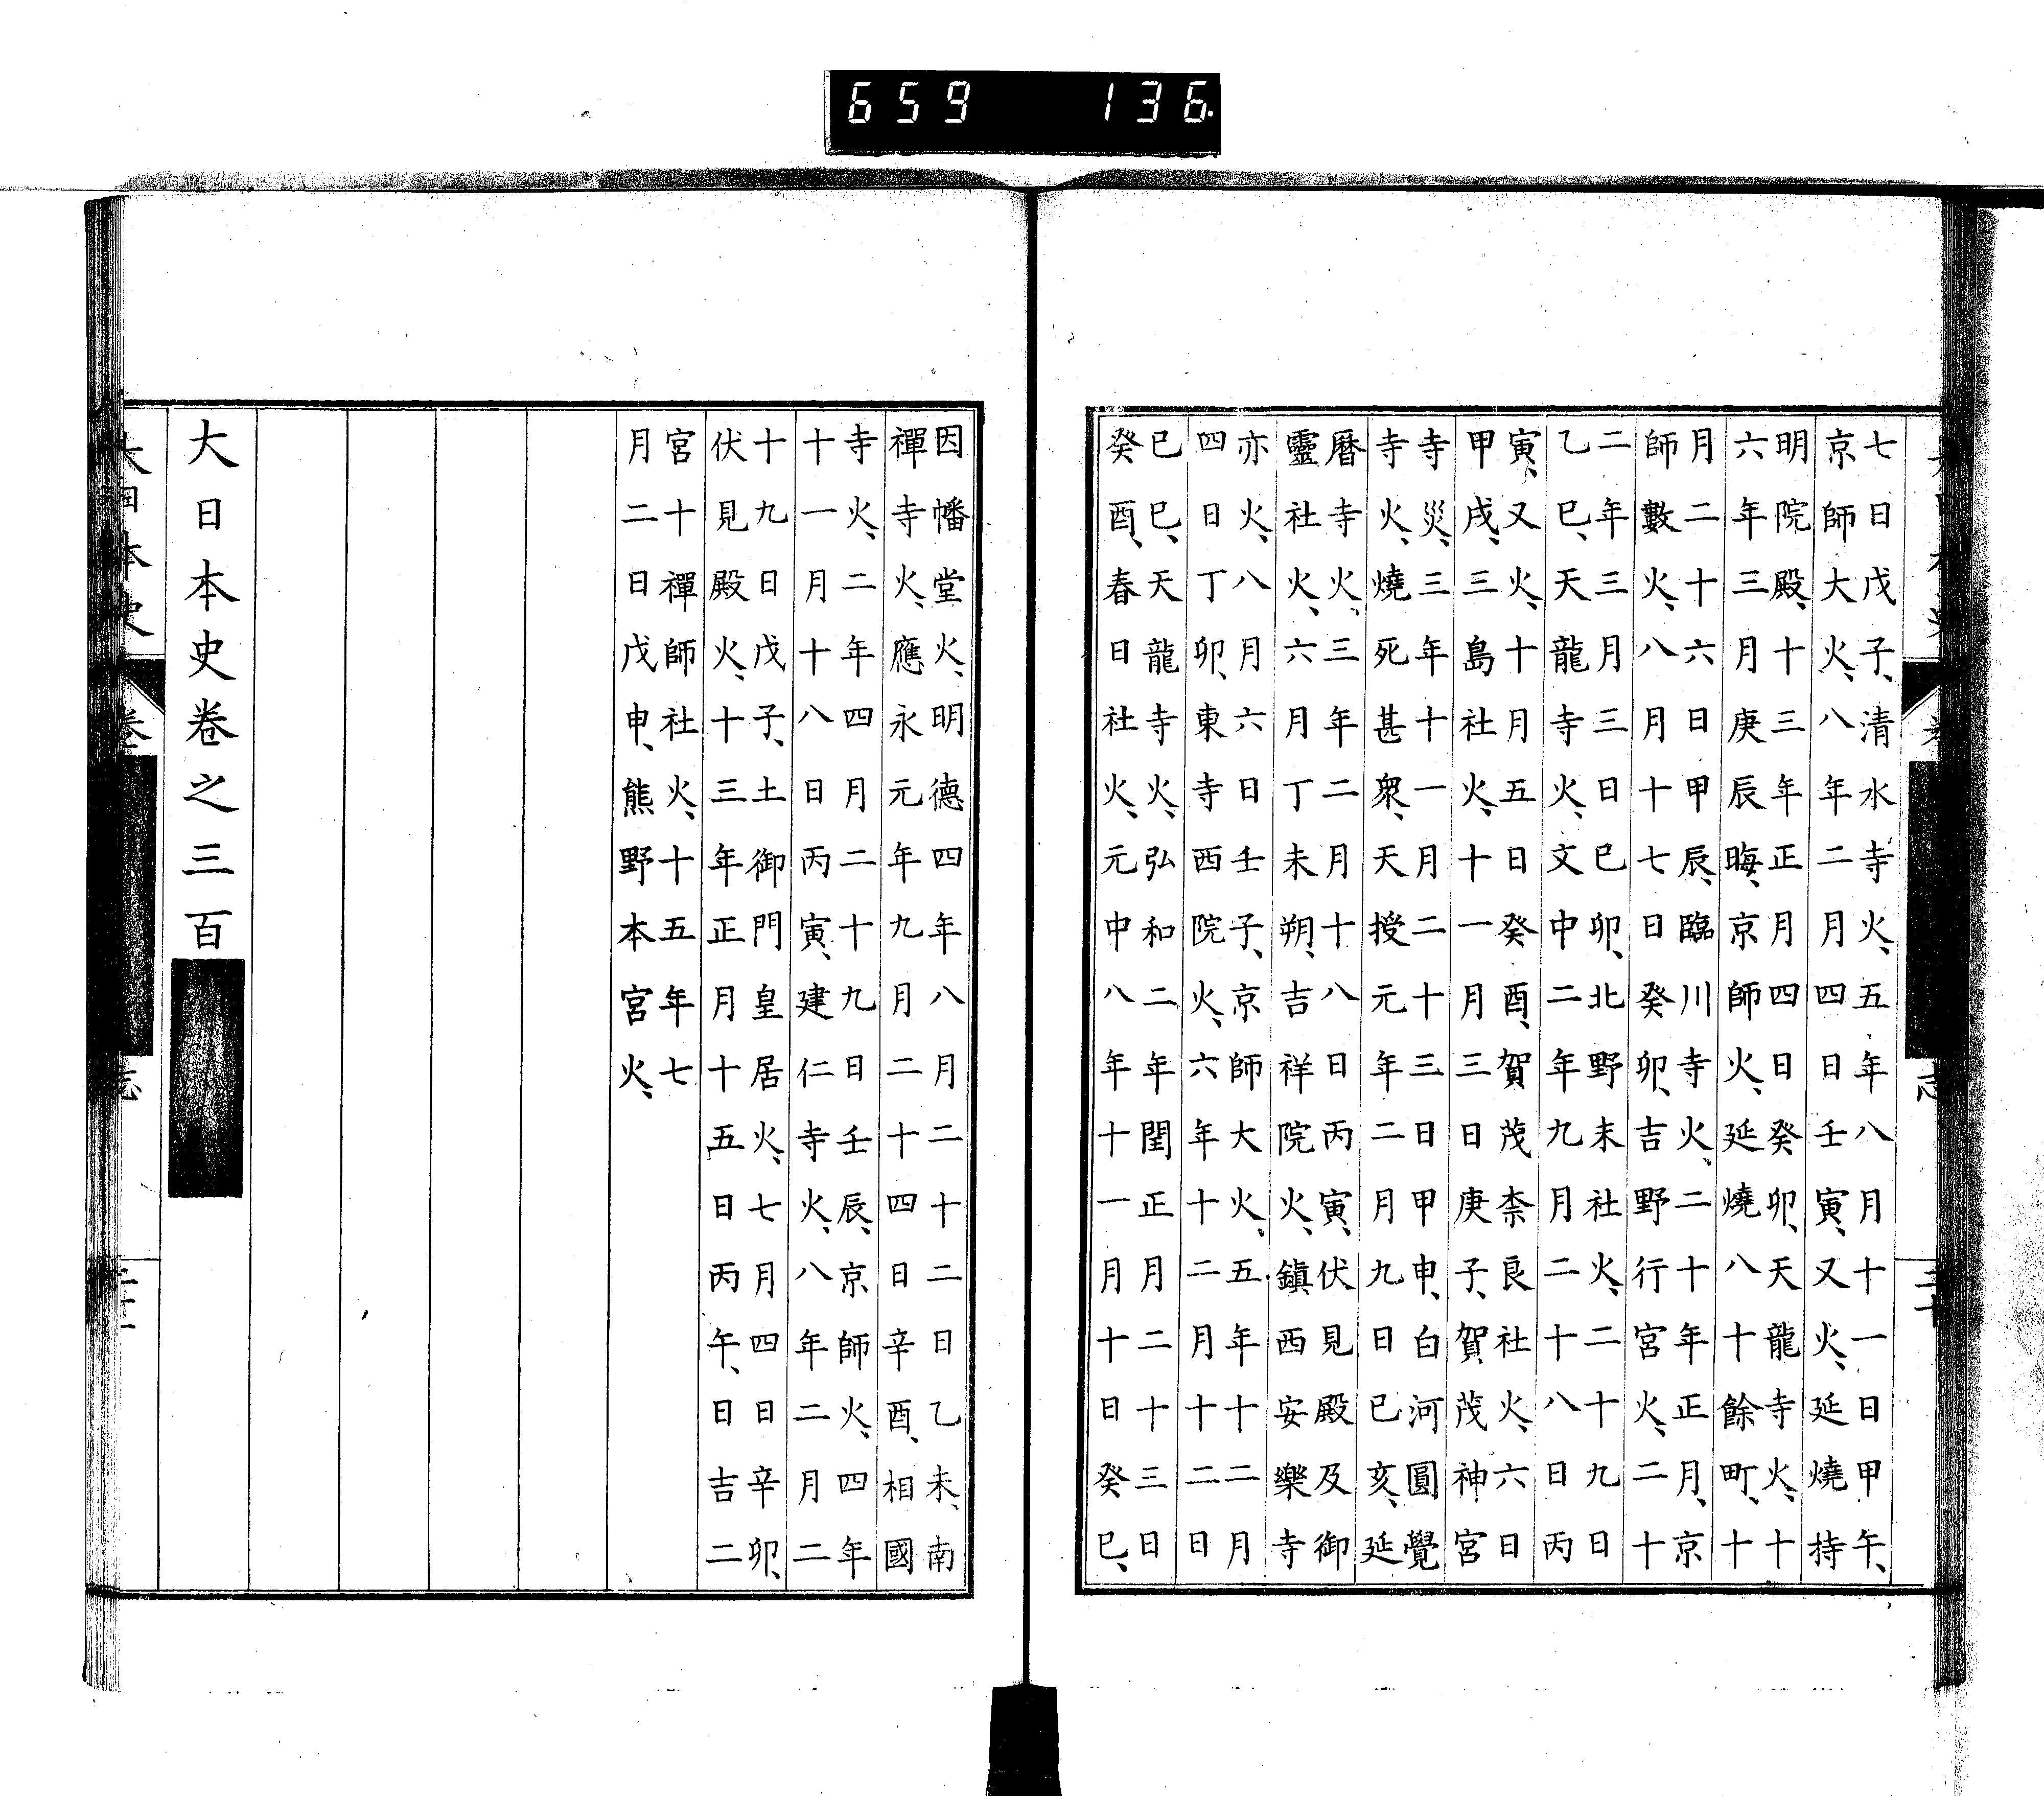 七日戊子、清水寺火、五年八月十一日甲午、
京師大火、八年二月四日壬寅、又火、延燒持
明院殿、十三年正月四日癸卯、天龍寺火、十
六年三月庚辰晦、京師火、延燒八十餘町、十
月二十六日甲辰、臨川寺火、二十年正月、京
師數火、八月十七日癸卯、吉野行宮火、二十
二年三月三日巳卯、北野末社火、二十九日
乙巳、天龍寺火、文中二年九月二十八日丙
寅、又火、十月五日癸酉、賀茂柰良社火、六日
甲戌、三島社火、十一月三日庚子、賀茂神宮
寺災、三年十一月二十三日甲申、白河圓覺
寺火、燒死甚衆、天授元年二月九日巳亥、延
曆寺火、三年二月十八日丙寅、伏見殿及御
靈社火、六月丁未朔、吉祥院火、鎭西安樂寺
亦火、八月六日壬子、京師大火、五年十二月
四日丁卯、東寺西院火、六年十二月十二日
巳巳、天龍寺火、弘和二年閏正月二十三日
癸酉、春日社火、元中八年十一月十日癸巳、
因幡堂火、明德四年八月二十二日乙未、南
禪寺火、應永元年九月二十四日辛酉、相國
寺火、二年四月二十九日壬辰、京師火、四年
十一月十八日丙寅、建仁寺火、八年二月二
十九日戊子、土御門皇居火、七月四日辛卯、
伏見殿火、十三年正月十五日丙午、日吉二
宮十禪師社火、十五年七
月二日戊申、熊野本宮火、
大日本史卷之三百
大日本史
卷
志
659 136